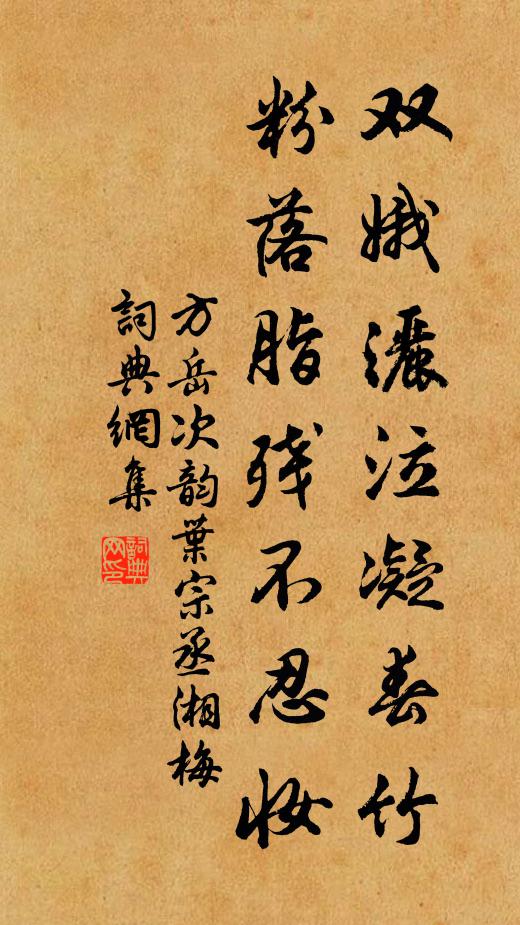 双娥灑泣凝春竹
粉落脂残不忍妆
方岳次韵葉宗丞湘梅
詞典網集
詞典网印